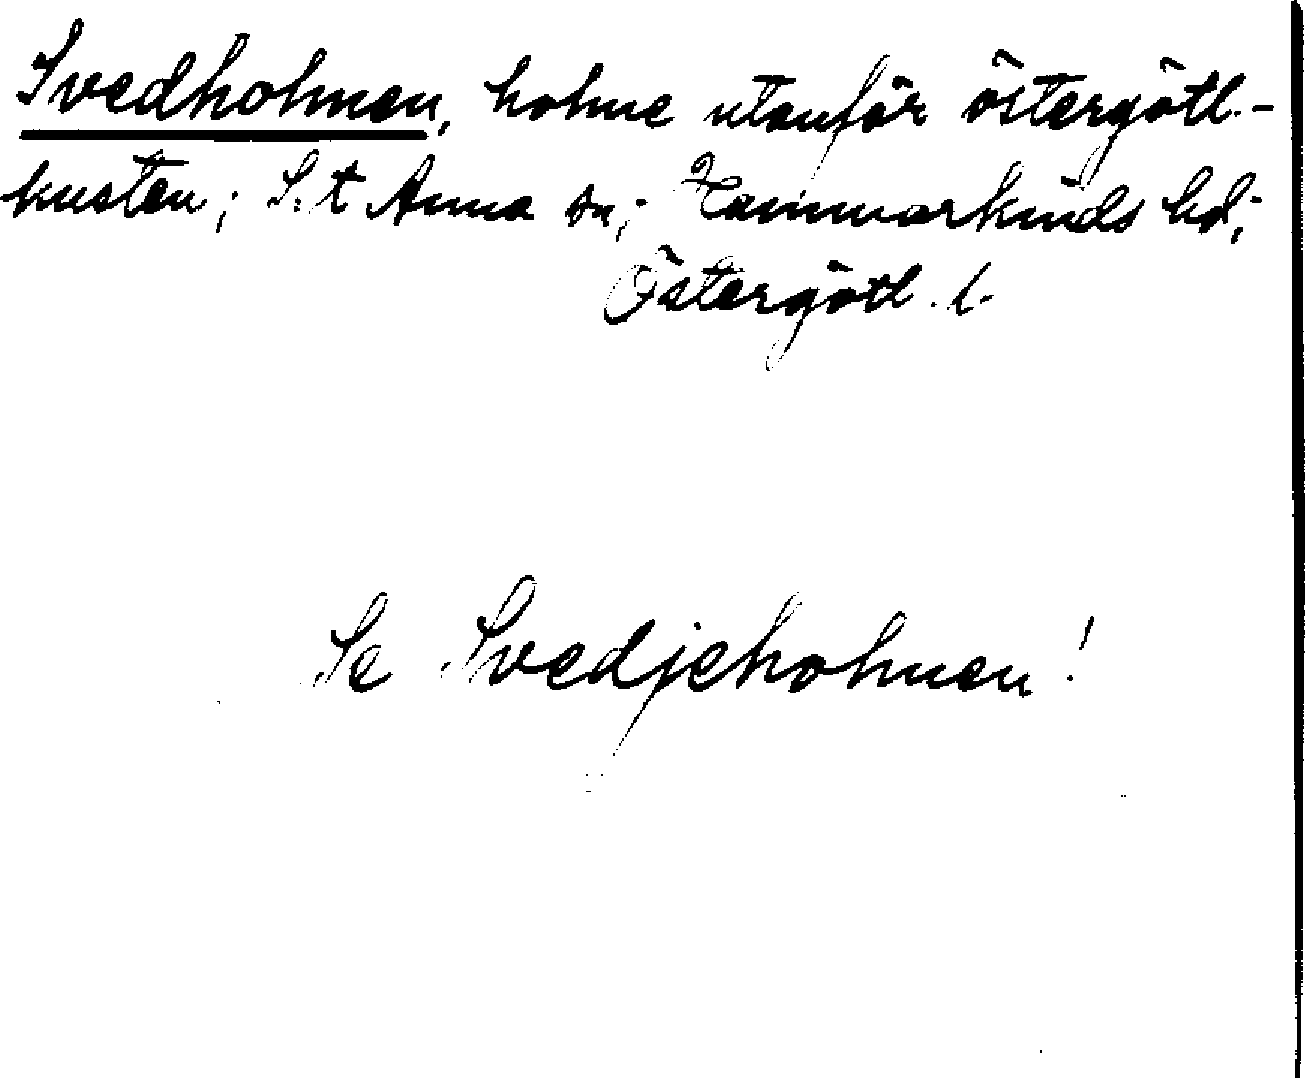 Svedholmen, holme utanför östergötl.-
kusten; S:t Anna sn; Hammarkinds hd;
Östergötl. l.
Se Svedjeholmen!